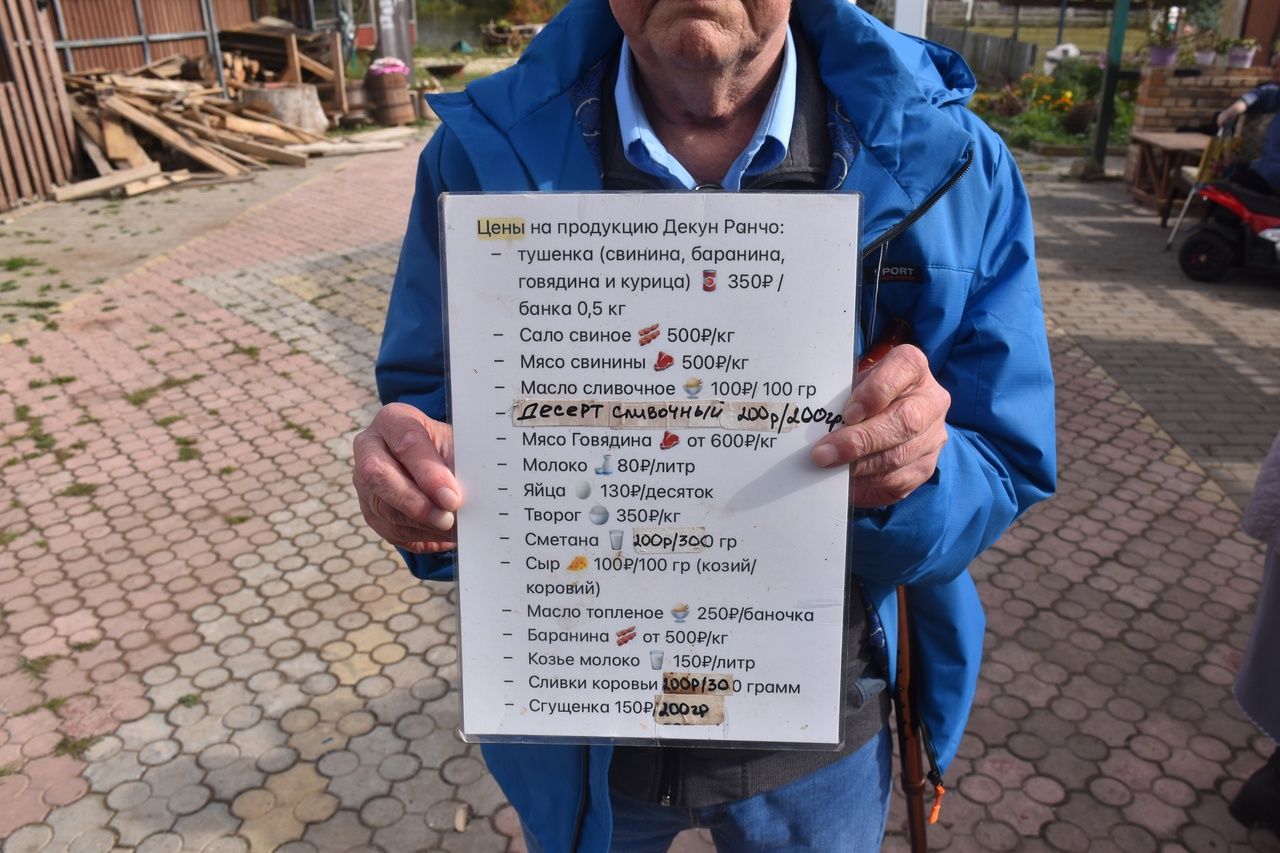 Цены на продукцию Декун Ранчо:
– тушенка (свинина, баранина,
говядина и курица) 350₽ /
банка 0,5 кг
– Сало свиное 500₽/кг
– Мясо свинины 500₽/кг
– Масло сливочное 100₽/ 100 гр
– ДЕСЕРТ СЛИВОЧНЫЙ 200р/200гр.
– Мясо Говядина от 600₽/кг
– Молоко 80₽/литр
– Яйца 130₽/десяток
– Творог 350₽/кг
– Сметана 200р/300 гр
– Сыр 100₽/100 гр (козий/
коровий)
– Масло топленое 250₽/баночка
– Баранина от 500₽/кг
– Козье молоко 150₽/литр
– Сливки коровьи 200р/300 грамм
– Сгущенка 150₽/200гр
SPORT